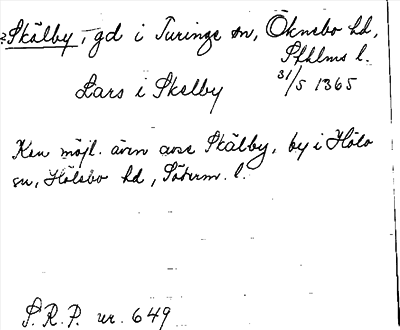 ? Skälby, gd i Turinge sn, Öknebo hd,
Sthlms l.
Lars i Skelby 31/5 1365
Kan möjl. även avse Skälby, by i Hölö
sn, Hölebo hd, Söderm. l.
S.R.P. nr. 649